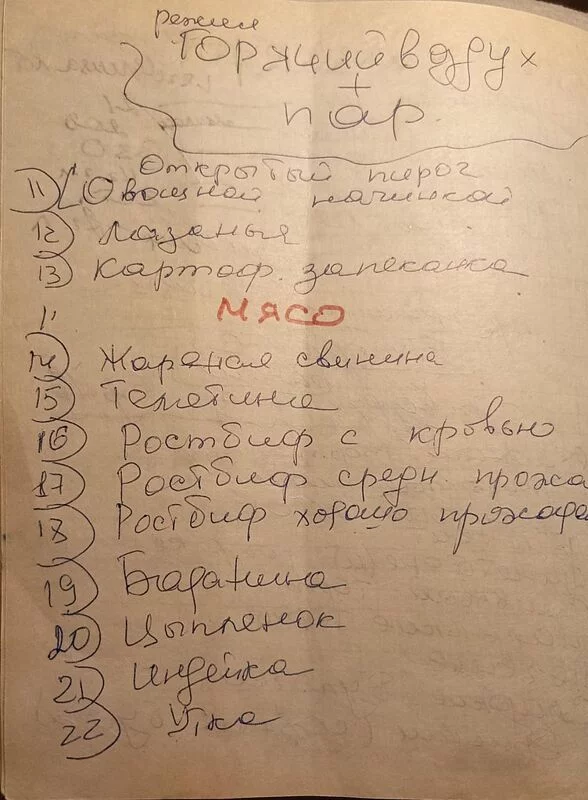 режим
Горячий воздух
+
пар.
Открытый пирог
11) Овощной начинкой
12) Лазанья
13) Картоф. запеканка
МЯСО
14) Жареная свинина
15) Телятина
16) Ростбиф с кровью
17) Ростбиф средн. прожа
18) Ростбиф хорошо прожара
19) Баранина
20) Цыпленок
21) Индейка
22) Утка